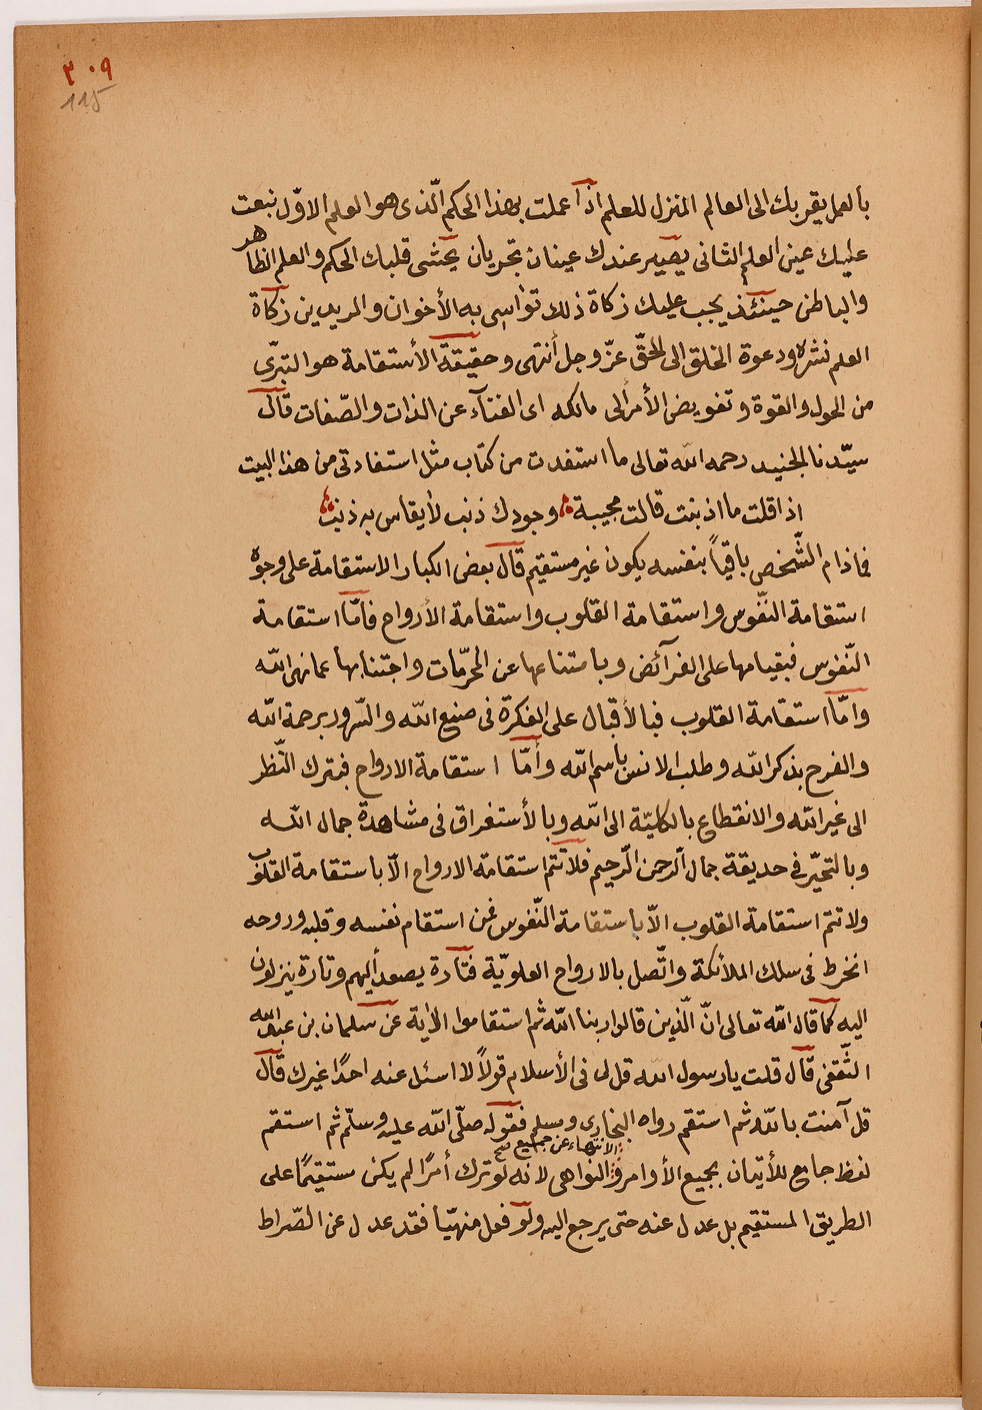 ٣٠٩
115
بالعمل يقربك الى العالم المنزل للعلم اذا عملت بهذا الحكم الّذى هو العلم الاوّل نبعت
عليك عين العلم الثانى يصير عندك عينان تجريان يحشى قلبك الحكم والعلم الظاهر
والباطن حينئذ يجب عليك زكاة ذلك تواسى به الأخوان والمريدين زكاة
العلم نشره ودعوة الخلق الى الحقّ عزّ وجل أنتهى وحقيقة الأستقامة هو التبرّى
من الحول والقوة وتفويض الأمر الى مالكه اى الفنآء عن الذات والصّفات قال
سيّدنا الجنيد رحمه الله تعالى ما استفدت من كتاب مثل استفادتى من هذا البيت
اذا قلت ما اذنبت قالت مجيبة وجودك ذنب لأيقاس به ذنب
فما ذام الشّخص باقياً بنفسه يكون غير مستقيم قال بعض الكبار الاستقامة على وجوه
استقامة النّفوس واستقامة القلوب واستقامة الأرواح فامّا استقامة
النّفوس فبقيامها على الفرآئض وبامتناعها عن المحرّمات واجتنابها عما نهى الله
وامّا استقامة القلوب فبالأقبال على الفكرة فى صنيع الله والسّرور برحمة الله
والفرح بذكر الله وطلب الانس باسم الله وأمّا استقامة الارواح فبترك النّظر
الى غير الله والانقطاع بالكليّة الى الله وبالأستغراق فى مشاهدة جمال الله
وبالتحيّر فى حديقة جمال الرحمن الرّحيم فلاتتم استقامة الارواح الّا باستقامة القلوب
ولا تتم استقامة القلوب الّا باستقامة النّفوس فمن استقام نفسه وقلبه وروحه
انخرط فى سلك الملائكة واتّصل بالارواح العلويّة فتارة يصعد أليهم وتارة ينزلون
اليه كما قال الله تعالى انّ الّذين قالوا ربنا الله ثم استقاموا الأية عن سلمان بن عبد الله
الثّقفى قال قلت يارسول الله قل لى فى الأسلام قولاً لا اسئل عنه احدًا غيرك قال
قل آمنت بالله ثم استقم رواه البخارى وسلم فقوله صلّى الله عليه وسلّم ثم استقم
الانتهاء عن جميع صح
لفظ جامع للأتيان بجميع الأوامر و النواهى لانه لو ترك أمرًا لم يكن مستقيمًا على
الطريق المستقيم بل عدل عنه حتى يرجع اليه ولو فعل منهيّا فقد عدل عن الصّراط